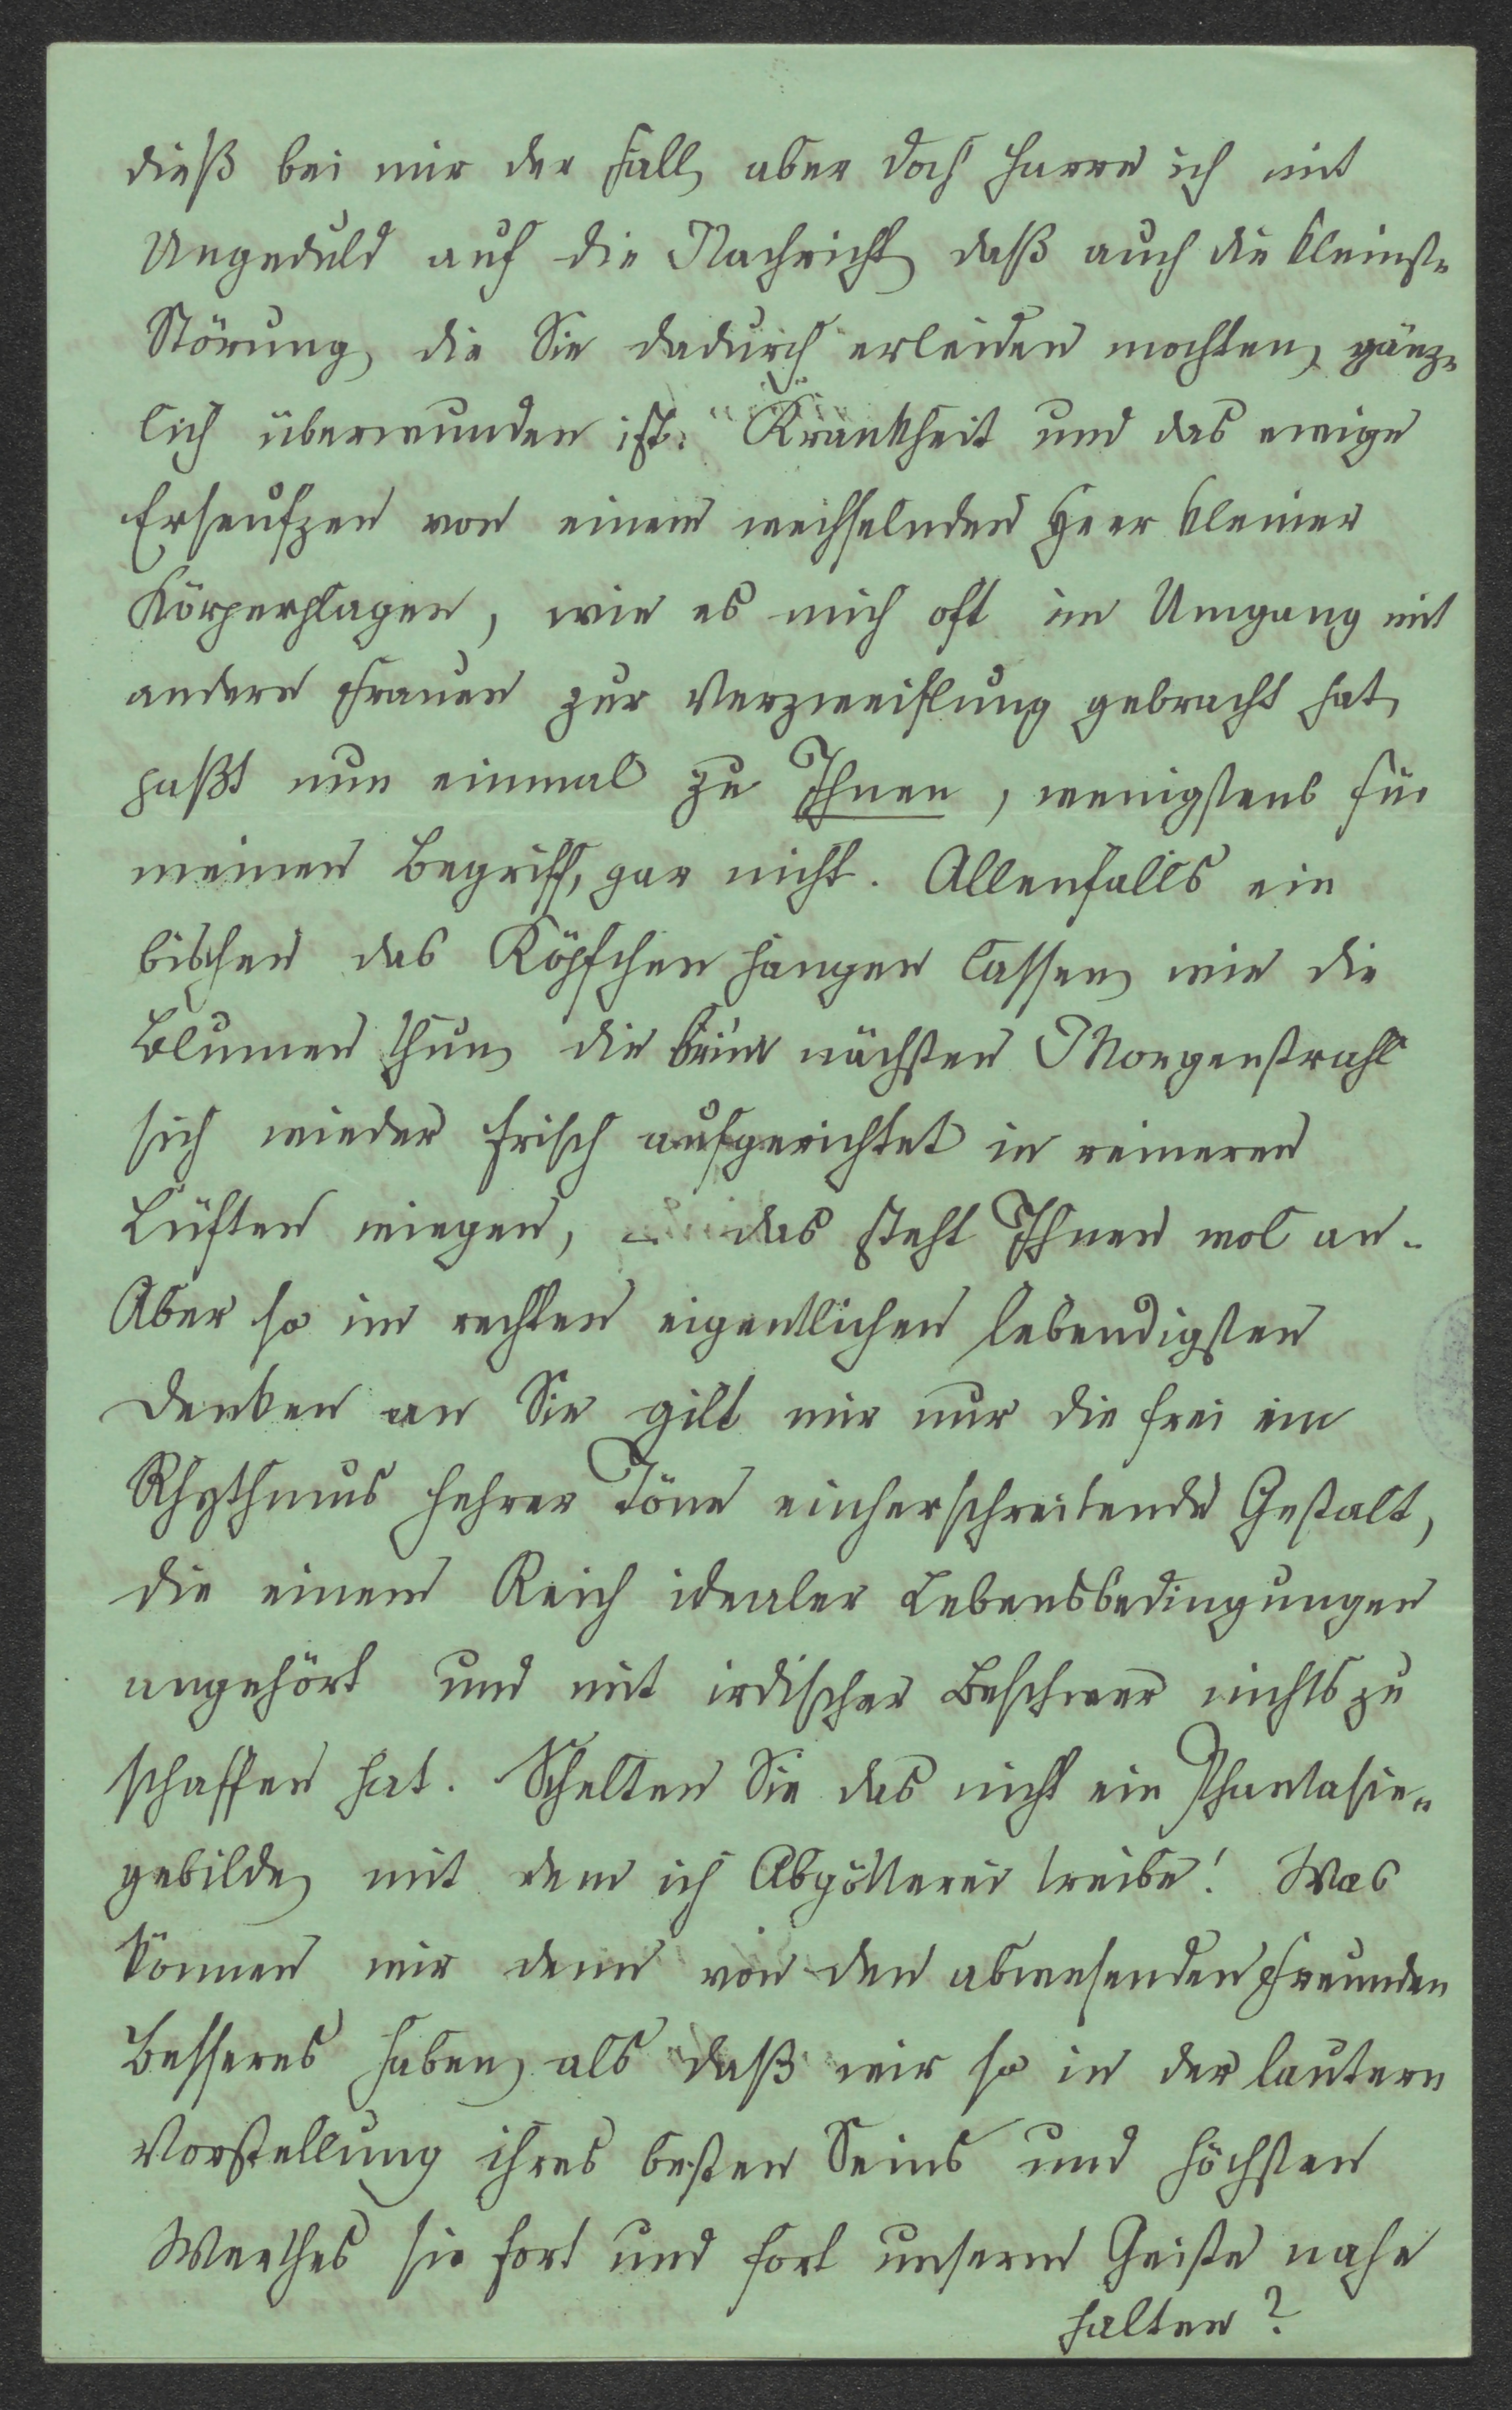 dieß bei mir der Fall, aber doch harre ich mit
Ungeduld auf die Nachricht, daß auch die kleinste
Störung, die Sie dadurch erleiden mochten, gänz-
lich überwunden ist. Krankheit und das ewige
Erseufzen von einem wechselnden Heer kleiner
Körperplagen, wie es mich oft im Umgang mit
andern Frauen zur Verzweiflung gebracht hat,
paßt nun einmal zu Ihnen, wenigstens für
meinen Begriff, gar nicht. Allenfalls ein
bischen das Köpfchen hängen lassen, wie die
Blumen thun, die beim nächsten Morgenstrahl
sich wieder frisch aufgerichtet in reineren
Lüften wiegen, – das steht Ihnen wol an.
Aber so im rechten eigentlichen lebendigsten
Denken an Sie gilt mir nur die frei im
Rhythmus hehrer Töne einherschreitende Gestalt,
die einem Reich idealer Lebensbedingungen
angehört und mit irdischer Beschwer nichts zu
schaffen hat. Schelten Sie das nicht ein Phantasie-
gebilde, mit dem ich Abgötterei treibe! Was
können wir denn von den abwesenden Freunden
Besseres haben, als daß wir so in der lautern
Vorstellung ihres besten Seins und höchsten
Werthes sie fort und fort unserm Geiste nahe
halten?